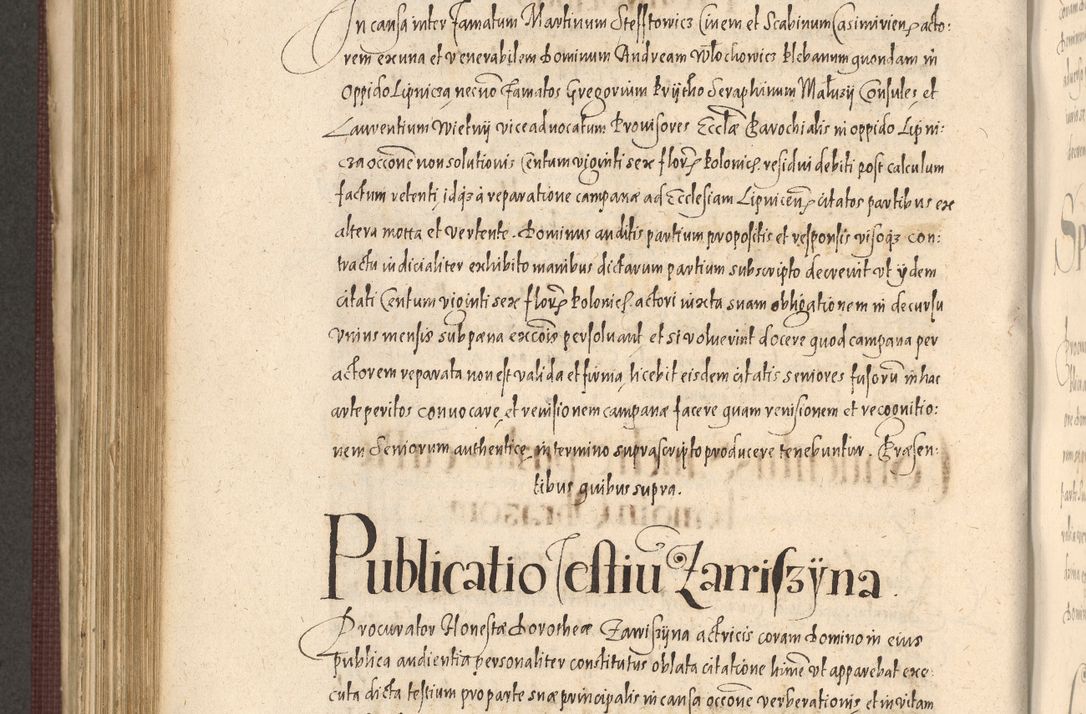 In causa inter famatum Martinum Stefftowicz Civem et Scabinum Casimirien, acto-
rem ex una et venerabilem Dominum Andream Wlochowicz Plebanum quondam in
Oppido Lipnicza necnō famatos Gregorium Krÿcho Seraphinum Małuzÿ Consules, et
Laurentium Wietrij viceadvocatum Provisores Ecclæ Parochialis in oppido Lipni-
cza occōne non solutionis Centum viginti sex florȝ Polonich. residui debiti post calculum
factum retenti, idqȝ à reparatione campanæ ad Ecclesiam Lipnicen, citatos partibus ex
altera mota et vertente. Dominus auditis partium propositis et responsis visoqȝ con-
tractu iudicialiter exhibito manibus dictarum partium subscripto decrevit vt ÿdem
citati Centum viginti sex florȝ Polonich. actori iuxta suam obligationem in decursu
vnius mensis sub pæna excōis persolvant et si voluerint docere quod campana per
actorem reparata non est valida et firma, licebit eisdem citatis seniores fusorū in hac
arte peritos convocare, et revisionem campanæ facere quam revisionem et recognitio-
nem Seniorum authenticę, in termino suprascripto producere tenebuntur. Præsen-
tibus quibus supra.
Publicatio Testiū Zarriszÿna.
Procurator Honestæ Dorotheæ Zarriszÿna actricis coram Domino in eius
publica audientia personaliter constitutus oblata citatione hinc vt apparebat exe-
cuta dicta testium pro parte suæ principalis in causa occōne verberationis, et invitam